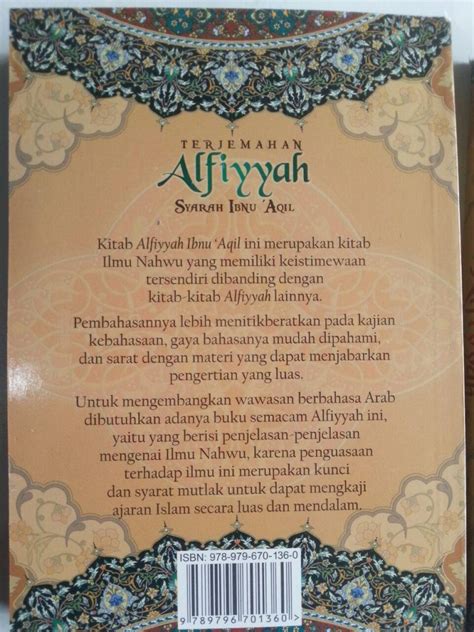 TERJEMAHAN
Alfiyyah
SYARAH IBNU 'AQIL
Kitab Alfiyyah Ibnu 'Aqil ini merupakan kitab
Ilmu Nahwu yang memiliki keistimewaan
tersendiri dibanding dengan
kitab-kitab Alfiyyah lainnya.
Pembahasannya lebih menitikberatkan pada kajian
kebahasaan, gaya bahasanya mudah dipahami,
dan sarat dengan materi yang dapat menjabarkan
pengertian yang luas.
Untuk mengembangkan wawasan berbahasa Arab
dibutuhkan adanya buku semacam Alfiyyah ini,
yaitu yang berisi penjelasan-penjelasan
mengenai Ilmu Nahwu, karena penguasaan
terhadap ilmu ini merupakan kunci
dan syarat mutlak untuk dapat mengkaji
ajaran Islam secara luas dan mendalam.
ISBN: 978-979-670-136-0
9 789796 701360 >